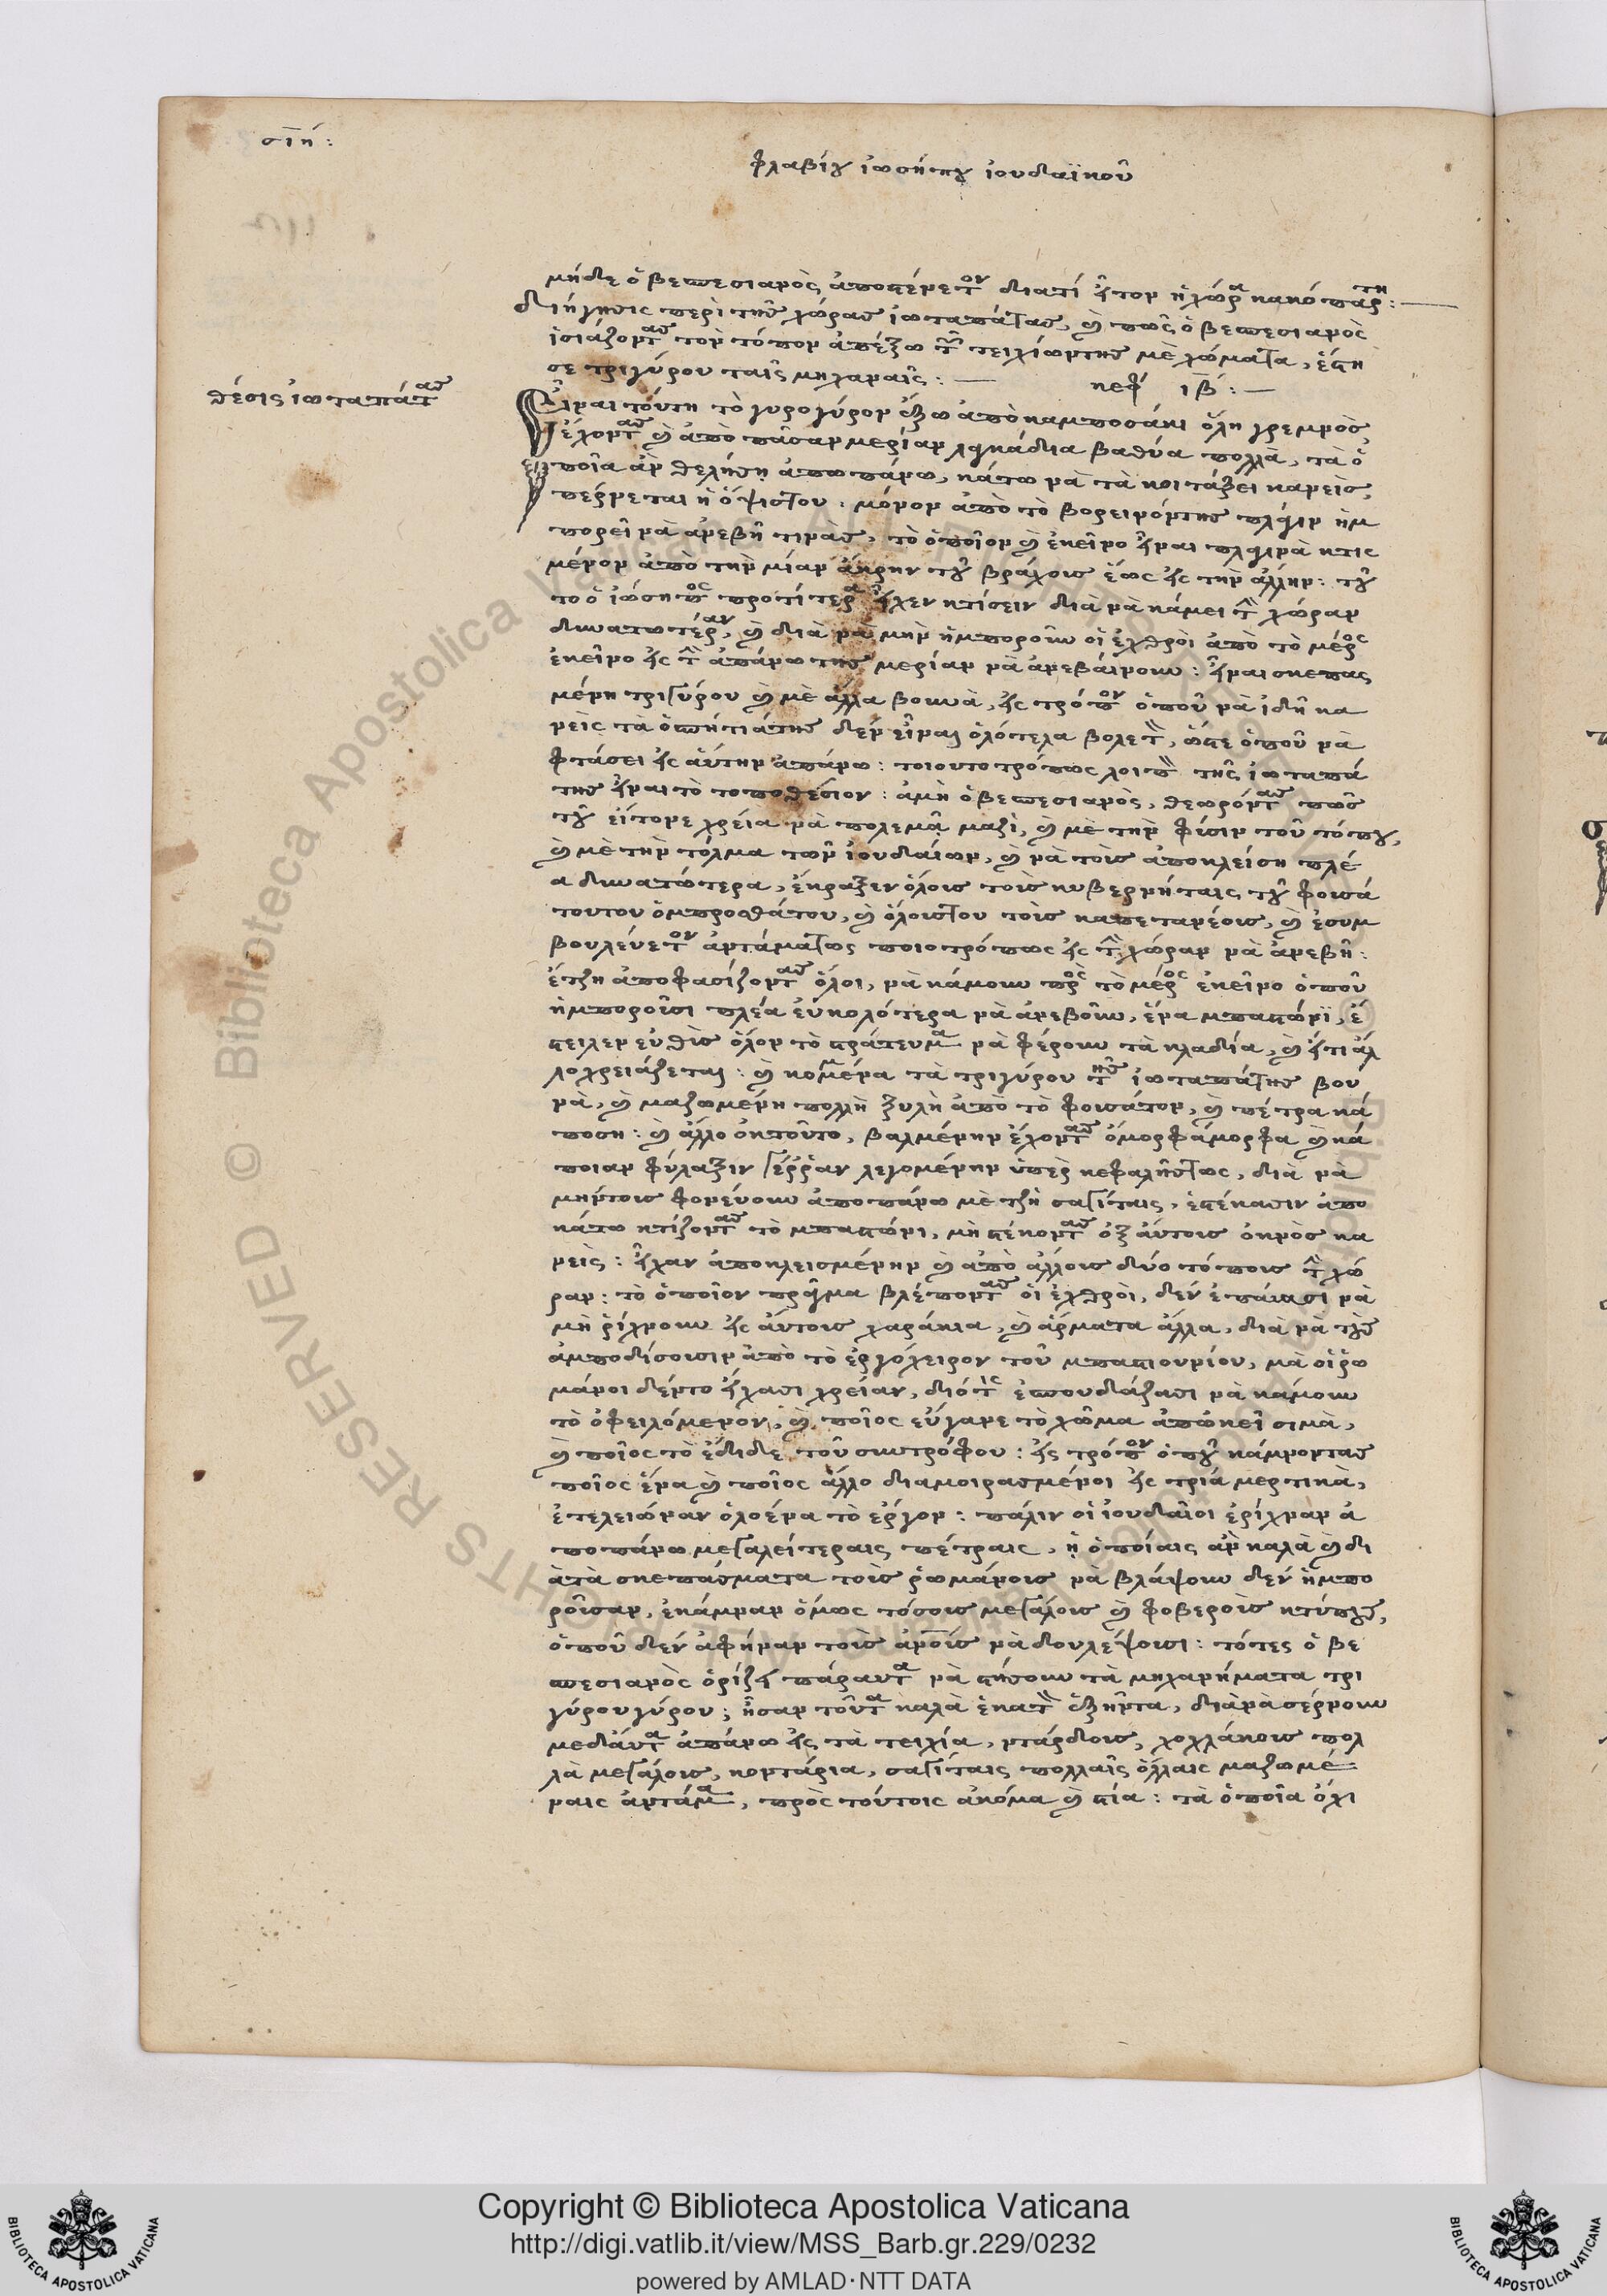 σιή:
φλαβίου ἰωσήπου ἰουδαϊκοῦ
μήδε ὁ βεσπεσιανὸς ἀποστένετον διατί ἦτον ἡ χώρα κακόπαρτη:
διήγησις περὶ τῆς χώρας ἰωταπάτας, καὶ πῶς ὁ βεσπεσιανὸς
ἰσιάζοντας τὸν τόπον ἀπέξω τῶν τειχίωντης μὲ χώματα, ἔστη
σε τριγύρου ταῖς μηχαναῖς: κεφ ιβ:
θέσις ἰωταπάτας
Εἶναι τούτη τὸ γυρογύρον ἔξω ἀπὸ καμποσάκι ὅλη γρεμνὸς
ἔχοντας καὶ ἀπὸ πᾶσαν μερίαν λαγκάδια βαθύα πολλὰ, τὰ ὁ
ποῖα ἀν θελήση ἀπωπάνω, κάτω νὰ τὰ κοιτάξει κανεὶς,
παίρνεται ἡ ὄψιςτου: μόνον ἀπὸ τὸ βορεινόντης πλάγιν ἠμ
πορεῖ νὰ ἀνεβῆ τινὰς, τὸ ὁποῖον καὶ ἐκεῖνο εἶναι πλαγινὰ κτις
μένον ἀπὸ τὴν μίαν ἄκρην τοῦ βράχους ἕως εἰς τὴν ἄλλην: τοῦ
το ὁ ἰώσηπος προτίτερα εἶχεν κτίσειν διὰ νὰ κάμει τὴν χώραν
δυνατωτέραν, καὶ διὰ νὰ μὴν ἠμποροῦν οἱ ἐχθροὶ ἀπὸ τὸ μέρος
ἐκεῖνο εἰς τὴν ἀπάνω της μερίαν νὰ ἀνεβάινουν: εἶναι σκεπας
μένη τριγύρου καὶ μὲ ἄλλα βουνὰ, εἰς τρόπον ὁποῦ νὰ ἰδῆ κα
νεὶς τὰ ὁσπήτιάτης δὲν εἶναι ὁλότελα βολετὸν, ὥστε ὁποῦ νὰ
φτάσει εἰς ἀύτην ἀπάνω: τοιουτοτρόπως λοιπὸν τῆς ἰωταπά
της εἶναι τὸ τοποθέσιον: ἀμὴ ὁ βεσπεσιανὸς, θεωρόντας πῶς
τοῦ εἴτονε χρεία νὰ πολεμᾶ μαζὶ, καὶ μὲ τὴν φύσιν τοῦ τόπου,
καὶ μὲ τὴν τόλμα τῶν ἰουδαίων, καὶ νὰ τοὺς ἀποκλείση πλέ
α δυνατώτερα, ἔκραξεν ὅλους τοὺς κυβερνήταις τοῦ φουσά
τουτου ὀμπροσθάτου, καὶ ὅλουςτου τοὺς καπετανέους, καὶ ἐσυμ
βουλέυετον ἀντάματως ποιοτρόπως εἰς τὴν χώραν νὰ ἀνεβῆ:
ἔτζη ἀποφασίζοντας ὅλοι, νὰ κάμουν πρὸς τὸ μέρος ἐκεῖνο ὁποῦ
ἠμποροῦσι πλέα ἐυκολότερα νὰ ἀνεβοῦν, ἕνα μπαστιώνι, ἔ
στειλεν εὐθὺς ὅλον τὸ στράτευμα νὰ φέρουν τὰ κλαδία, καὶ ἤτι ἄλ
λο χρειάζεται: καὶ κομμένα τὰ τριγύρου τῆς ἰωταπάτης βου
νὰ, καὶ μαζωμένη πολλὴ ξυλὴ ἀπὸ τὸ φουσάτον, καὶ πέτρα κά
ποση: καὶ ἄλλο ὀκτοῦτο, βαλμένην ἔχοντας ὄμορφάμορφα καὶ κά
ποιαν φύλαξιν γέῤῥαν λεγομένην ὑπὲρ κεφαλῆςτως, διὰ νὰ
μήντους φονέυουν ἀποπάνω μὲ τζὴ σαγίταις, ἐστέκασιν ἀπο
κάτω κτίζοντας τὸ μπαστιώνι, μὴ στέκοντας ὀξ ἀύτους ὀκνὸς κα
νεὶς: εἶχαν ἀποκλεισμένην καὶ ἀπὸ ἄλλους δύο τόπους τὴν χώ
ραν: τὸ ὁποῖον πράγμα βλέποντας οἱ ἐχθροὶ, δὲν ἐπάυασι νὰ
μὴ ῥίχνουν εἰς ἀύτους χαράκια, καὶ ἄρματα ἄλλα, διὰ νὰ τοὺς
ἀμποδίσουσιν ἀπὸ τὸ ἐργόχειρον τοῦ μπαστιουνίου, μὰ οἱ ῥω
μάνοι δέντο εἴχασι χρείαν, διότὶς ἐσπουδάζασι νὰ κάμουν
τὸ ὀφειλόμενον, καὶ ποῖος εὔγανε τὸ χῶμα ἀπὠκεῖ σιμὰ,
καὶ ποῖος τὸ ἔδιδε τοῦ συντρόφου: εἰς τρόπον ὁποῦ κάμνοντας
ποῖος ἕνα καὶ ποῖος ἄλλο διαμοιρασμένοι εἰς τριά μερτικὰ,
ἐτελειώναν ὁλοένα τὸ ἔργον: πάλιν οἱ ἰουδαῖοι ἐρίχναν ἀ
ποπάνω μεγαλείτεραις πέτραις, ἡ ὁποίαις ἀν καλὰ καὶ δι
ὰτὰ σκεπάσματα τοὺς ῥωμάνους νὰ βλάψουν δὲν ἠμπο
ροῦσαν, ἐκάμναν ὅμως τόσους μεγάλους καὶ φοβεροὺς κτύπους,
ὁποῦ δὲν ἀφήναν τοὺς ἀνοὺς νὰ δουλέψουσι: τότες ὁ βε
σπεσιανὸς ὁρίζει πάραυτα νὰ στήσουν τὰ μηχανήματα τρι
γύρου γύρου; ἦσαν τοῦτα καλὰ ἑκατὸν ἑξῆντα, διὰ νὰ σέρνουν
μεδάυτα ἀπάνω εἰς τὰ τειχία, ντάρδους, χοχλάκους πολ
λὰ μεγάλους, κοντάρια, σαγίταις πολλαῖς ὅλλαις μαζωμέ
ναις ἀντάμα, πρὸς τούτοις ἀκόμα καὶ στία: τὰ ὁποῖα ὄχι
Copyright © Biblioteca Apostolica Vaticana
http://digi.vatlib.it/view/MSS_Barb.gr.229/0232
powered by AMLAD·NTT DATA